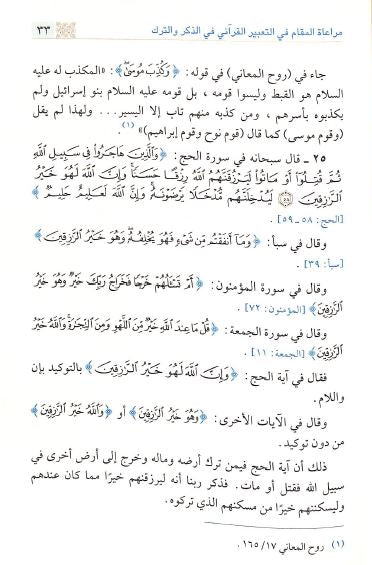 مراعاة المقام في التعبير القرآني في الذكر والترك
٣٣
جاء في (روح المعاني) في قوله: ﴿وَكُذِّبَ مُوسَىٰ﴾: «المكذب له عليه
السلام هو القبط وليسوا قومه، بل قومه عليه السلام بنو إسرائيل ولم
يكذبوه بأسرهم، ومن كذبه منهم تاب إلا اليسير... ولهذا لم يقل
(وقوم موسى) كما قال (قوم نوح وقوم إبراهيم)»(١).
٢٥ ـ قال سبحانه في سورة الحج: ﴿وَٱلَّذِينَ هَاجَرُوا۟ فِى سَبِيلِ ٱللَّهِ
ثُمَّ قُتِلُوٓا۟ أَوْ مَاتُوا۟ لَيَرْزُقَنَّهُمُ ٱللَّهُ رِزْقًا حَسَنًا ۚ وَإِنَّ ٱللَّهَ لَهُوَ خَيْرُ
ٱلرَّٰزِقِينَ ۝٥٨ لَيُدْخِلَنَّهُم مُّدْخَلًا يَرْضَوْنَهُۥ ۗ وَإِنَّ ٱللَّهَ لَعَلِيمٌ حَلِيمٌ﴾
[الحج: ٥٨ ـ ٥٩].
وقال في سبأ: ﴿وَمَآ أَنفَقْتُم مِّن شَىْءٍ فَهُوَ يُخْلِفُهُۥ ۖ وَهُوَ خَيْرُ ٱلرَّٰزِقِينَ﴾
[سبأ: ٣٩].
وقال في سورة المؤمنون: ﴿أَمْ تَسْـَٔلُهُمْ خَرْجًا فَخَرَاجُ رَبِّكَ خَيْرٌ ۖ وَهُوَ خَيْرُ
ٱلرَّٰزِقِينَ﴾ [المؤمنون: ٧٢].
وقال في سورة الجمعة: ﴿قُلْ مَا عِندَ ٱللَّهِ خَيْرٌ مِّنَ ٱللَّهْوِ وَمِنَ ٱلتِّجَٰرَةِ ۚ وَٱللَّهُ خَيْرُ
ٱلرَّٰزِقِينَ﴾ [الجمعة: ١١].
فقال في آية الحج: ﴿وَإِنَّ ٱللَّهَ لَهُوَ خَيْرُ ٱلرَّٰزِقِينَ﴾ بالتوكيد بإن
واللام.
وقال في الآيات الأخرى: ﴿وَهُوَ خَيْرُ ٱلرَّٰزِقِينَ﴾ أو ﴿وَٱللَّهُ خَيْرُ ٱلرَّٰزِقِينَ﴾
من دون توكيد.
ذلك أن آية الحج فيمن ترك أرضه وماله وخرج إلى أرض أخرى في
سبيل الله فقتل أو مات. فذكر ربنا أنه ليرزقنهم خيرًا مما كان عندهم
وليسكننهم خيرًا من مسكنهم الذي تركوه.
(١) روح المعاني ١٧/ ١٦٥.